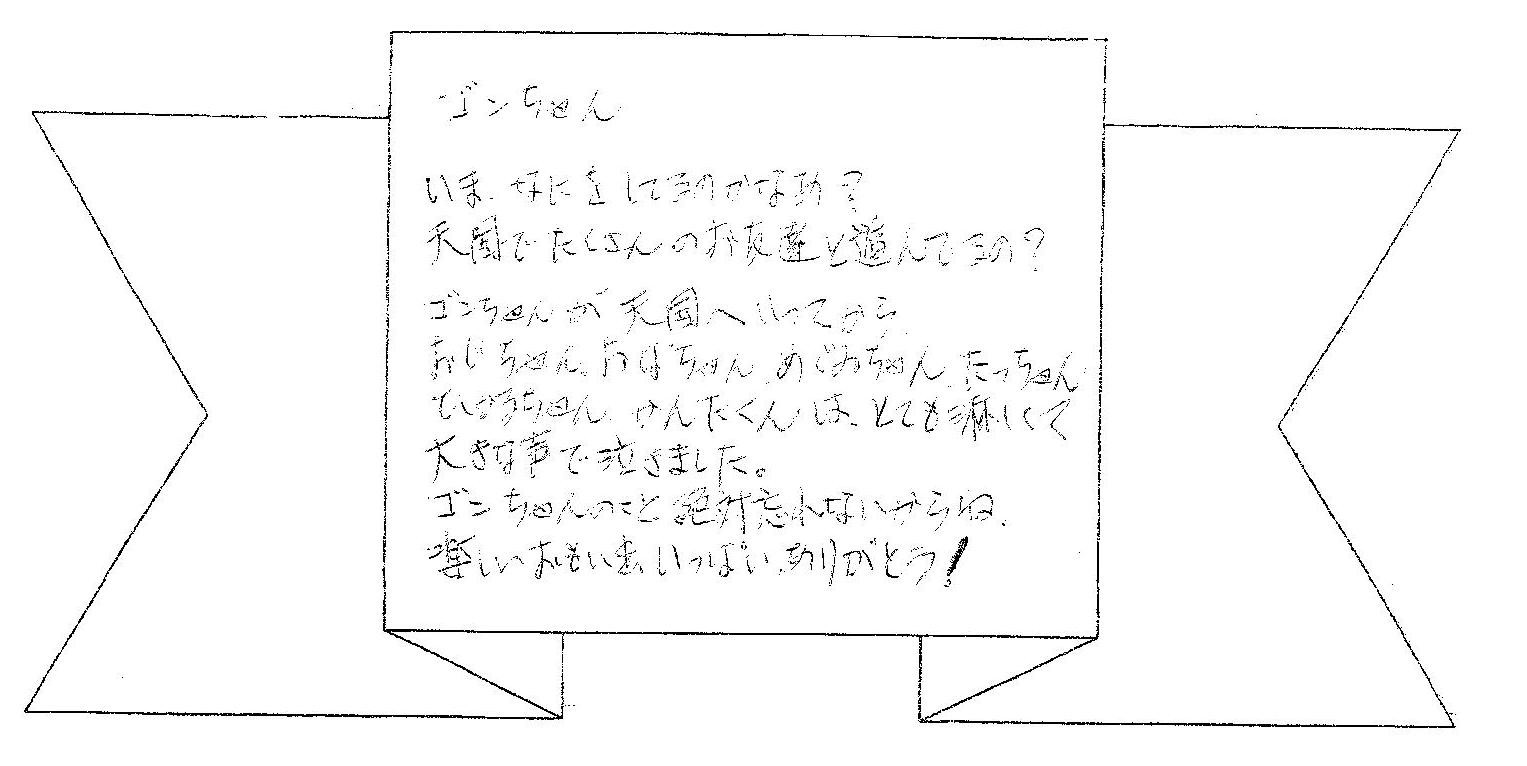 ゴンちゃん
いま、なにをしてるのかなあ?
天国でたくさんのお友達と遊んでるの?
ゴンちゃんが天国へいってから、
おじちゃん、おばちゃん、めぐみちゃん、たっちゃん
ひかるちゃん、かんたくんは、とても淋しくて
大きな声で泣きました。
ゴンちゃんのこと絶対忘れないからね、
楽しいおもいで、いっぱい、ありがとう!